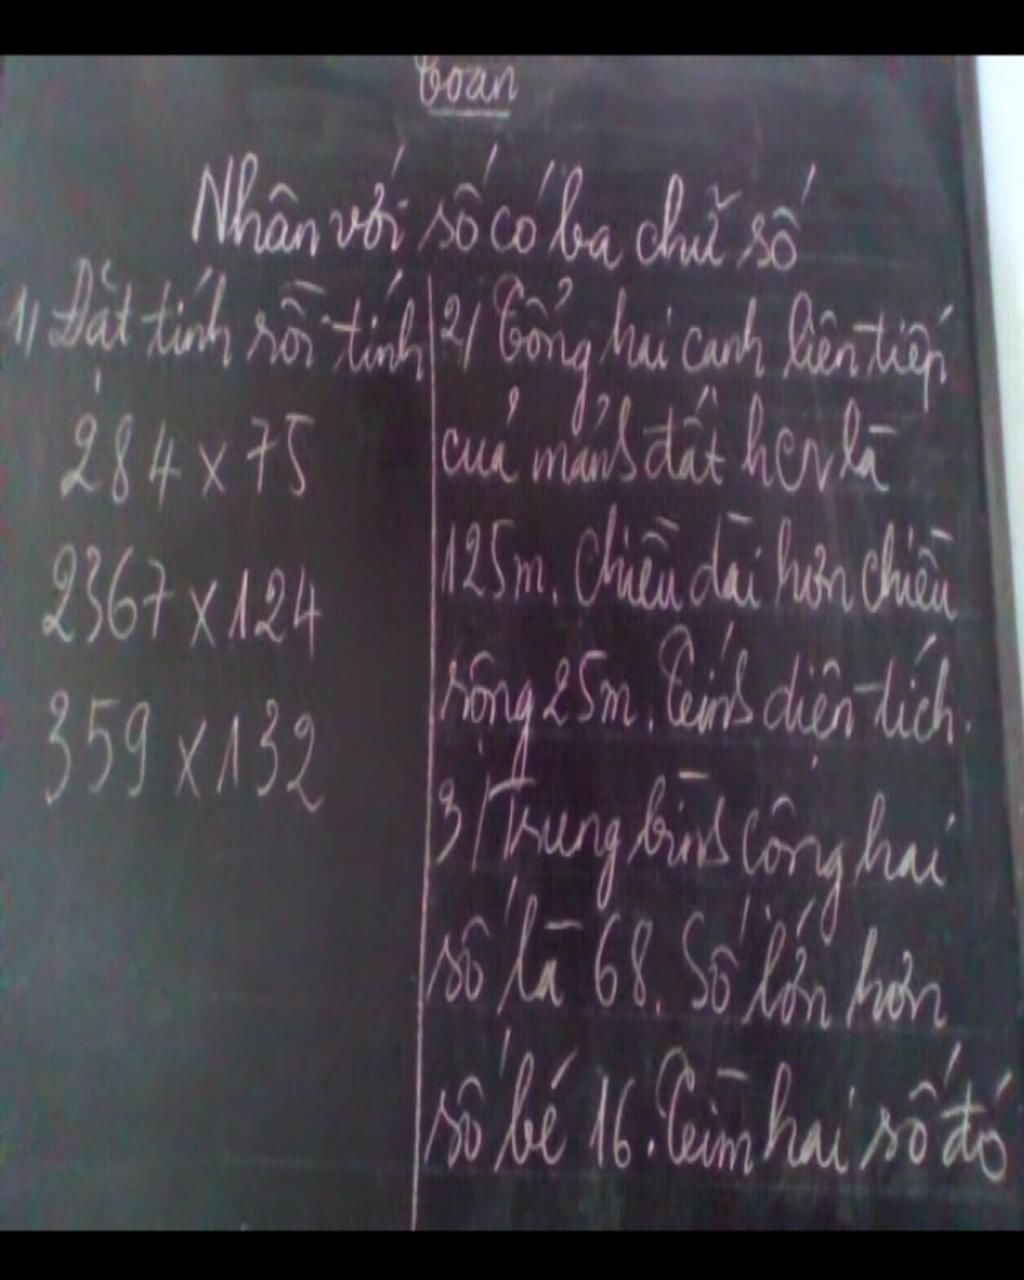 Toán
Nhân với số có ba chữ số
1) Đặt tính rồi tính
284 x 75
2367 x 124
359 x 132
2) Tổng hai cạnh liên tiếp
của mảnh đất hcn là
125m. Chiều dài hơn chiều
rộng 25m. Tính diện tích.
3) Trung bình cộng hai
số là 68. Số lớn hơn
số bé 16. Tìm hai số đó